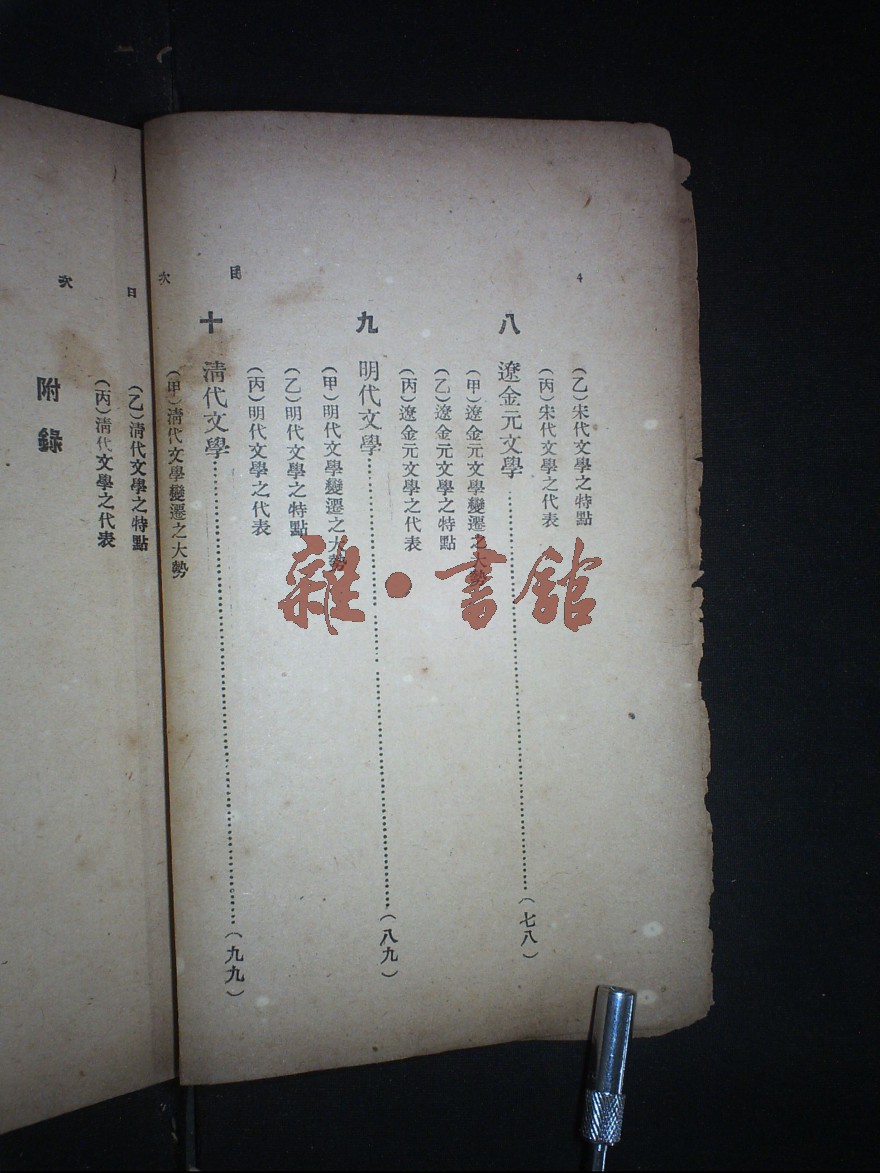 4
目次
(乙)宋代文學之特點
(丙)宋代文學之代表
八 遼金元文學……(七八)
(甲)遼金元文學變遷之大勢
(乙)遼金元文學之特點
(丙)遼金元文學之代表
九 明代文學……(八九)
(甲)明代文學變遷之大勢
(乙)明代文學之特點
(丙)明代文學之代表
十 清代文學……(九九)
(甲)清代文學變遷之大勢
目次
(乙)清代文學之特點
(丙)清代文學之代表
附錄
雜·書館